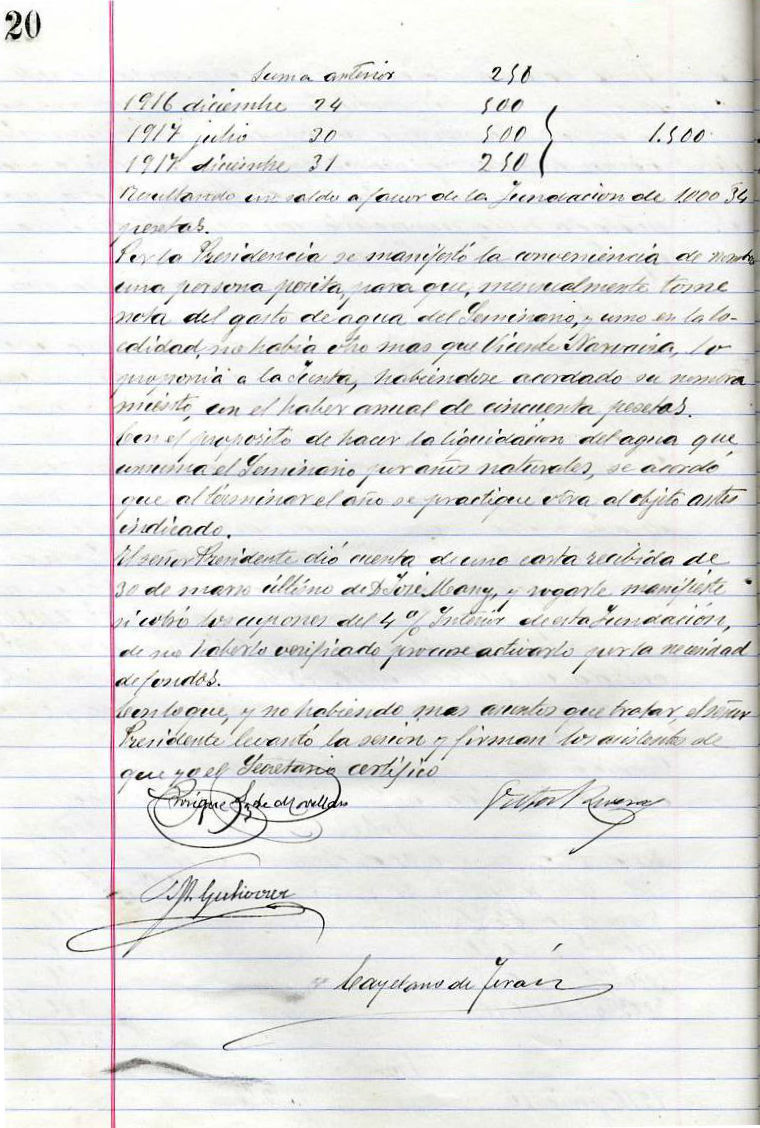 20
Suma anterior 250
1916 diciembre 24 500
1917 julio 30 500 1.500
1917 diciembre 31 250
Resultando un saldo a favor de la Fundacion de 1.000 34
pesetas.
Por la Presidencia se manifestó la conveniencia de nombrar
una persona perita, para que, mensualmente tome
nota del gasto de agua del Seminario, y como en la lo-
calidad, no habia otro mas que Vicente Narvaiza, lo
proponia á la Junta, habiéndose acordado su nombra
miento, con el haber anual de cincuenta pesetas.
Con el proposito de hacer la liquidación del agua que
consuma el Seminario por años naturales, se acordó
que al términar el año se practique otra al objeto antes
indicado.
El señor Presidente dió cuenta de una carta recibida de
30 de marzo último de D. José Many, y rogarle manifieste
si cobró los cupones del 4 % Interior de esta Fundación,
de no haberlo verificado procure activarlo por la necesidad
de fondos.
Con lo que, y no habiendo mas asuntos que tratar, el señor
Presidente levantó la sesión y firman los asistentes de
que yo el Secretario certifico
Enrique de Movellan Victor Rivera
M. Gutierrez
Cayetano de